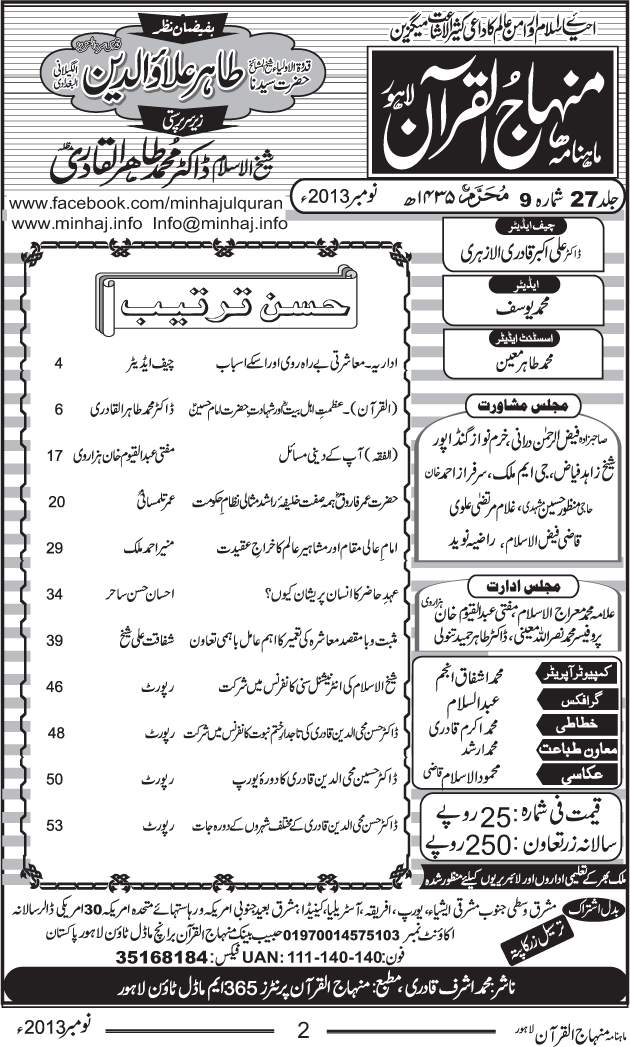 احیائے اسلام اور امن عالم کا داعی کثیر الاشاعت میگزین
ماہنامہ منہاج القرآن لاہور
بفیضان نظر
قدوۃ الاولیاء شیخ المشائخ حضرت سیدنا طاہر علاؤالدین الگیلانی البغدادی
زیر سرپرستی
شیخ الاسلام ڈاکٹر محمد طاہر القادری
جلد 27 شمارہ 9 محرم ۱۴۳۵ھ نومبر 2013ء
www.facebook.com/minhajulquran
www.minhaj.info Info@minhaj.info
چیف ایڈیٹر
ڈاکٹر علی اکبر قادری الازہری
ایڈیٹر
محمد یوسف
اسسٹنٹ ایڈیٹر
محمد طاہر معین
مجلس مشاورت
صاحبزادہ فیض الرحمن درانی، خرم نواز گنڈاپور
شیخ زاہد فیاض، جی ایم ملک، سرفراز احمد خان
حاجی منظور حسین مشہدی، غلام مرتضیٰ علوی
قاضی فیض الاسلام، راضیہ نوید
مجلس ادارت
علامہ محمد معراج الاسلام، مفتی عبدالقیوم خان ہزاروی
پروفیسر محمد نصراللہ معینی، ڈاکٹر طاہر حمید تنولی
کمپیوٹر آپریٹر محمد اشفاق انجم
گرافکس عبدالسلام
خطاطی محمد اکرم قادری
معاون طباعت محمد ارشد
عکاسی محمود الاسلام قاضی
قیمت فی شمارہ: 25 روپے
سالانہ زر تعاون: 250 روپے
ملک بھر کے تعلیمی اداروں اور لائبریریوں کیلئے منظور شدہ
حسن ترتیب
اداریہ۔ معاشرتی بے راہ روی اور اسکے اسباب چیف ایڈیٹر 4
(القرآن)۔ عظمتِ اہل بیتؑ اور شہادت حضرت امام حسینؑ ڈاکٹر محمد طاہر القادری 6
(الفقہ) آپ کے دینی مسائل مفتی عبدالقیوم خان ہزاروی 17
حضرت عمر فاروقؓ ہمہ صفت خلیفہ راشد مثالی نظام حکومت عمر تلمسانیؒ 20
امام عالی مقام اور مشاہیر عالم کا خراج عقیدت منیر احمد ملک 29
عہد حاضر کا انسان پریشان کیوں؟ احسان حسن ساحر 34
مثبت و بامقصد معاشرہ کی تعمیر کا اہم عامل باہمی تعاون شفاقت علی شیخ 39
شیخ الاسلام کی انٹرنیشنل سنی کانفرنس میں شرکت رپورٹ 46
ڈاکٹر حسن محی الدین قادری کی تاجدار ختم نبوت کانفرنس میں شرکت رپورٹ 48
ڈاکٹر حسین محی الدین قادری کا دورۂ یورپ رپورٹ 50
ڈاکٹر حسن محی الدین قادری کے مختلف شہروں کے دورہ جات رپورٹ 53
بدل اشتراک مشرق وسطیٰ جنوب مشرقی ایشیاء، یورپ، افریقہ، آسٹریلیا، کینیڈا، مشرق بعید جنوبی امریکہ و ریاستہائے متحدہ امریکہ 30 امریکی ڈالر سالانہ
ترسیل زر کا پتہ اکاؤنٹ نمبر 01970014575103 حبیب بینک منہاج القرآن برانچ ماڈل ٹاؤن لاہور پاکستان
فون: UAN: 111-140-140 فیکس: 35168184
ناشر: محمد اشرف قادری، مطبع: منہاج القرآن پرنٹرز 365 ایم ماڈل ٹاؤن لاہور
ماہنامہ منہاج القرآن لاہور 2 نومبر 2013ء